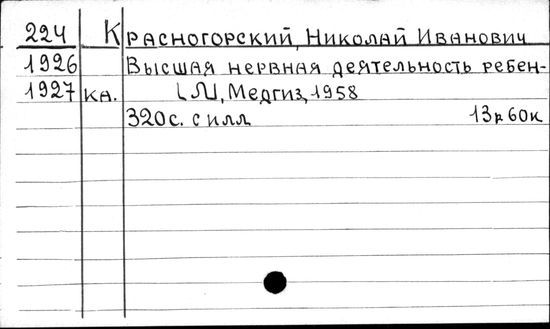 224 Красногорский, Николай Иванович
1926 Высшая нервная деятельность ребен-
1927 кн. Л., Медгиз, 1958
320с. с илл 13р 60к